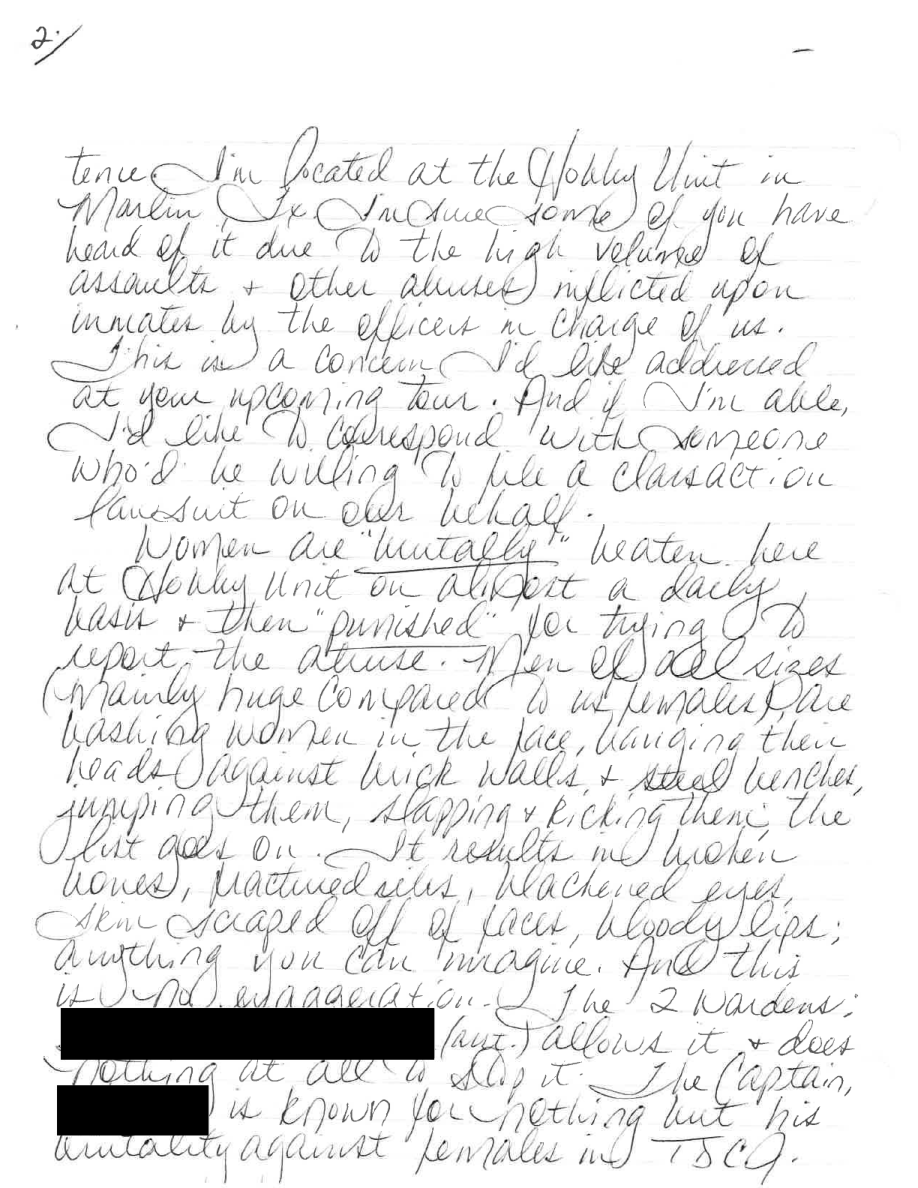 2.
tence. I'm located at the Hobby Unit in
Marlin, Tx. I'm sure some of you have
heard of it due to the high volume of
assaults + other abuses inflicted upon
inmates by the officers in charge of us.
This is a concern I'd like addressed
at your upcoming tour. And if I'm able,
I'd like to correspond with someone
who'd be willing to file a classaction
lawsuit on our behalf.
Women are "brutally" beaten here
at Hobby Unit on almost a daily
basis + then "punished" for trying to
report the abuse. Men of all sizes
(mainly huge compared to us females) are
bashing women in the face, banging their
heads against brick walls, + steel benches,
jumping them, slapping + kicking them; the
list goes on. It results in broken
bones, fractured ribs, blackened eyes,
skin scraped off of faces, bloody lips;
anything you can imagine. And this
is no exaggeration. The 2 Wardens:
(asst.) allows it + does
nothing at all to stop it. The Captain,
is known for nothing but his
brutality against females in TDCJ.